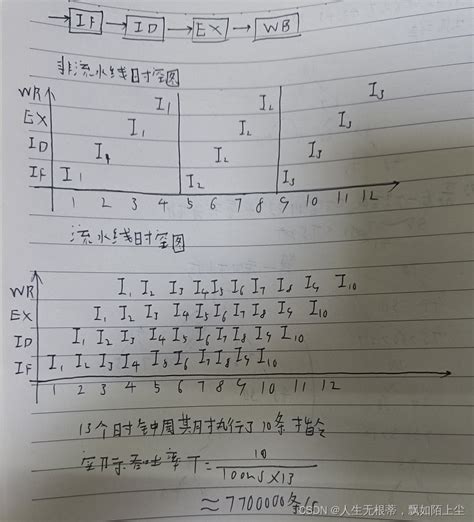 IF ID EX WB
非流水线时空图
WR I₁ I₂ I₃
EX I₁ I₂ I₃
ID I₁ I₂ I₃
IF I₁ I₂ I₃
1 2 3 4 5 6 7 8 9 10 11 12
流水线时空图
WR I₁ I₂ I₃ I₄ I₅ I₆ I₇ I₈ I₉ I₁₀
EX I₁ I₂ I₃ I₄ I₅ I₆ I₇ I₈ I₉ I₁₀
ID I₁ I₂ I₃ I₄ I₅ I₆ I₇ I₈ I₉ I₁₀
IF I₁ I₂ I₃ I₄ I₅ I₆ I₇ I₈ I₉ I₁₀
1 2 3 4 5 6 7 8 9 10 11 12
13个时钟周期执行了10条指令
实际吞吐率T = 10
100nS×13
≈ 7700000条/s
CSDN @人生无根蒂，飘如陌上尘